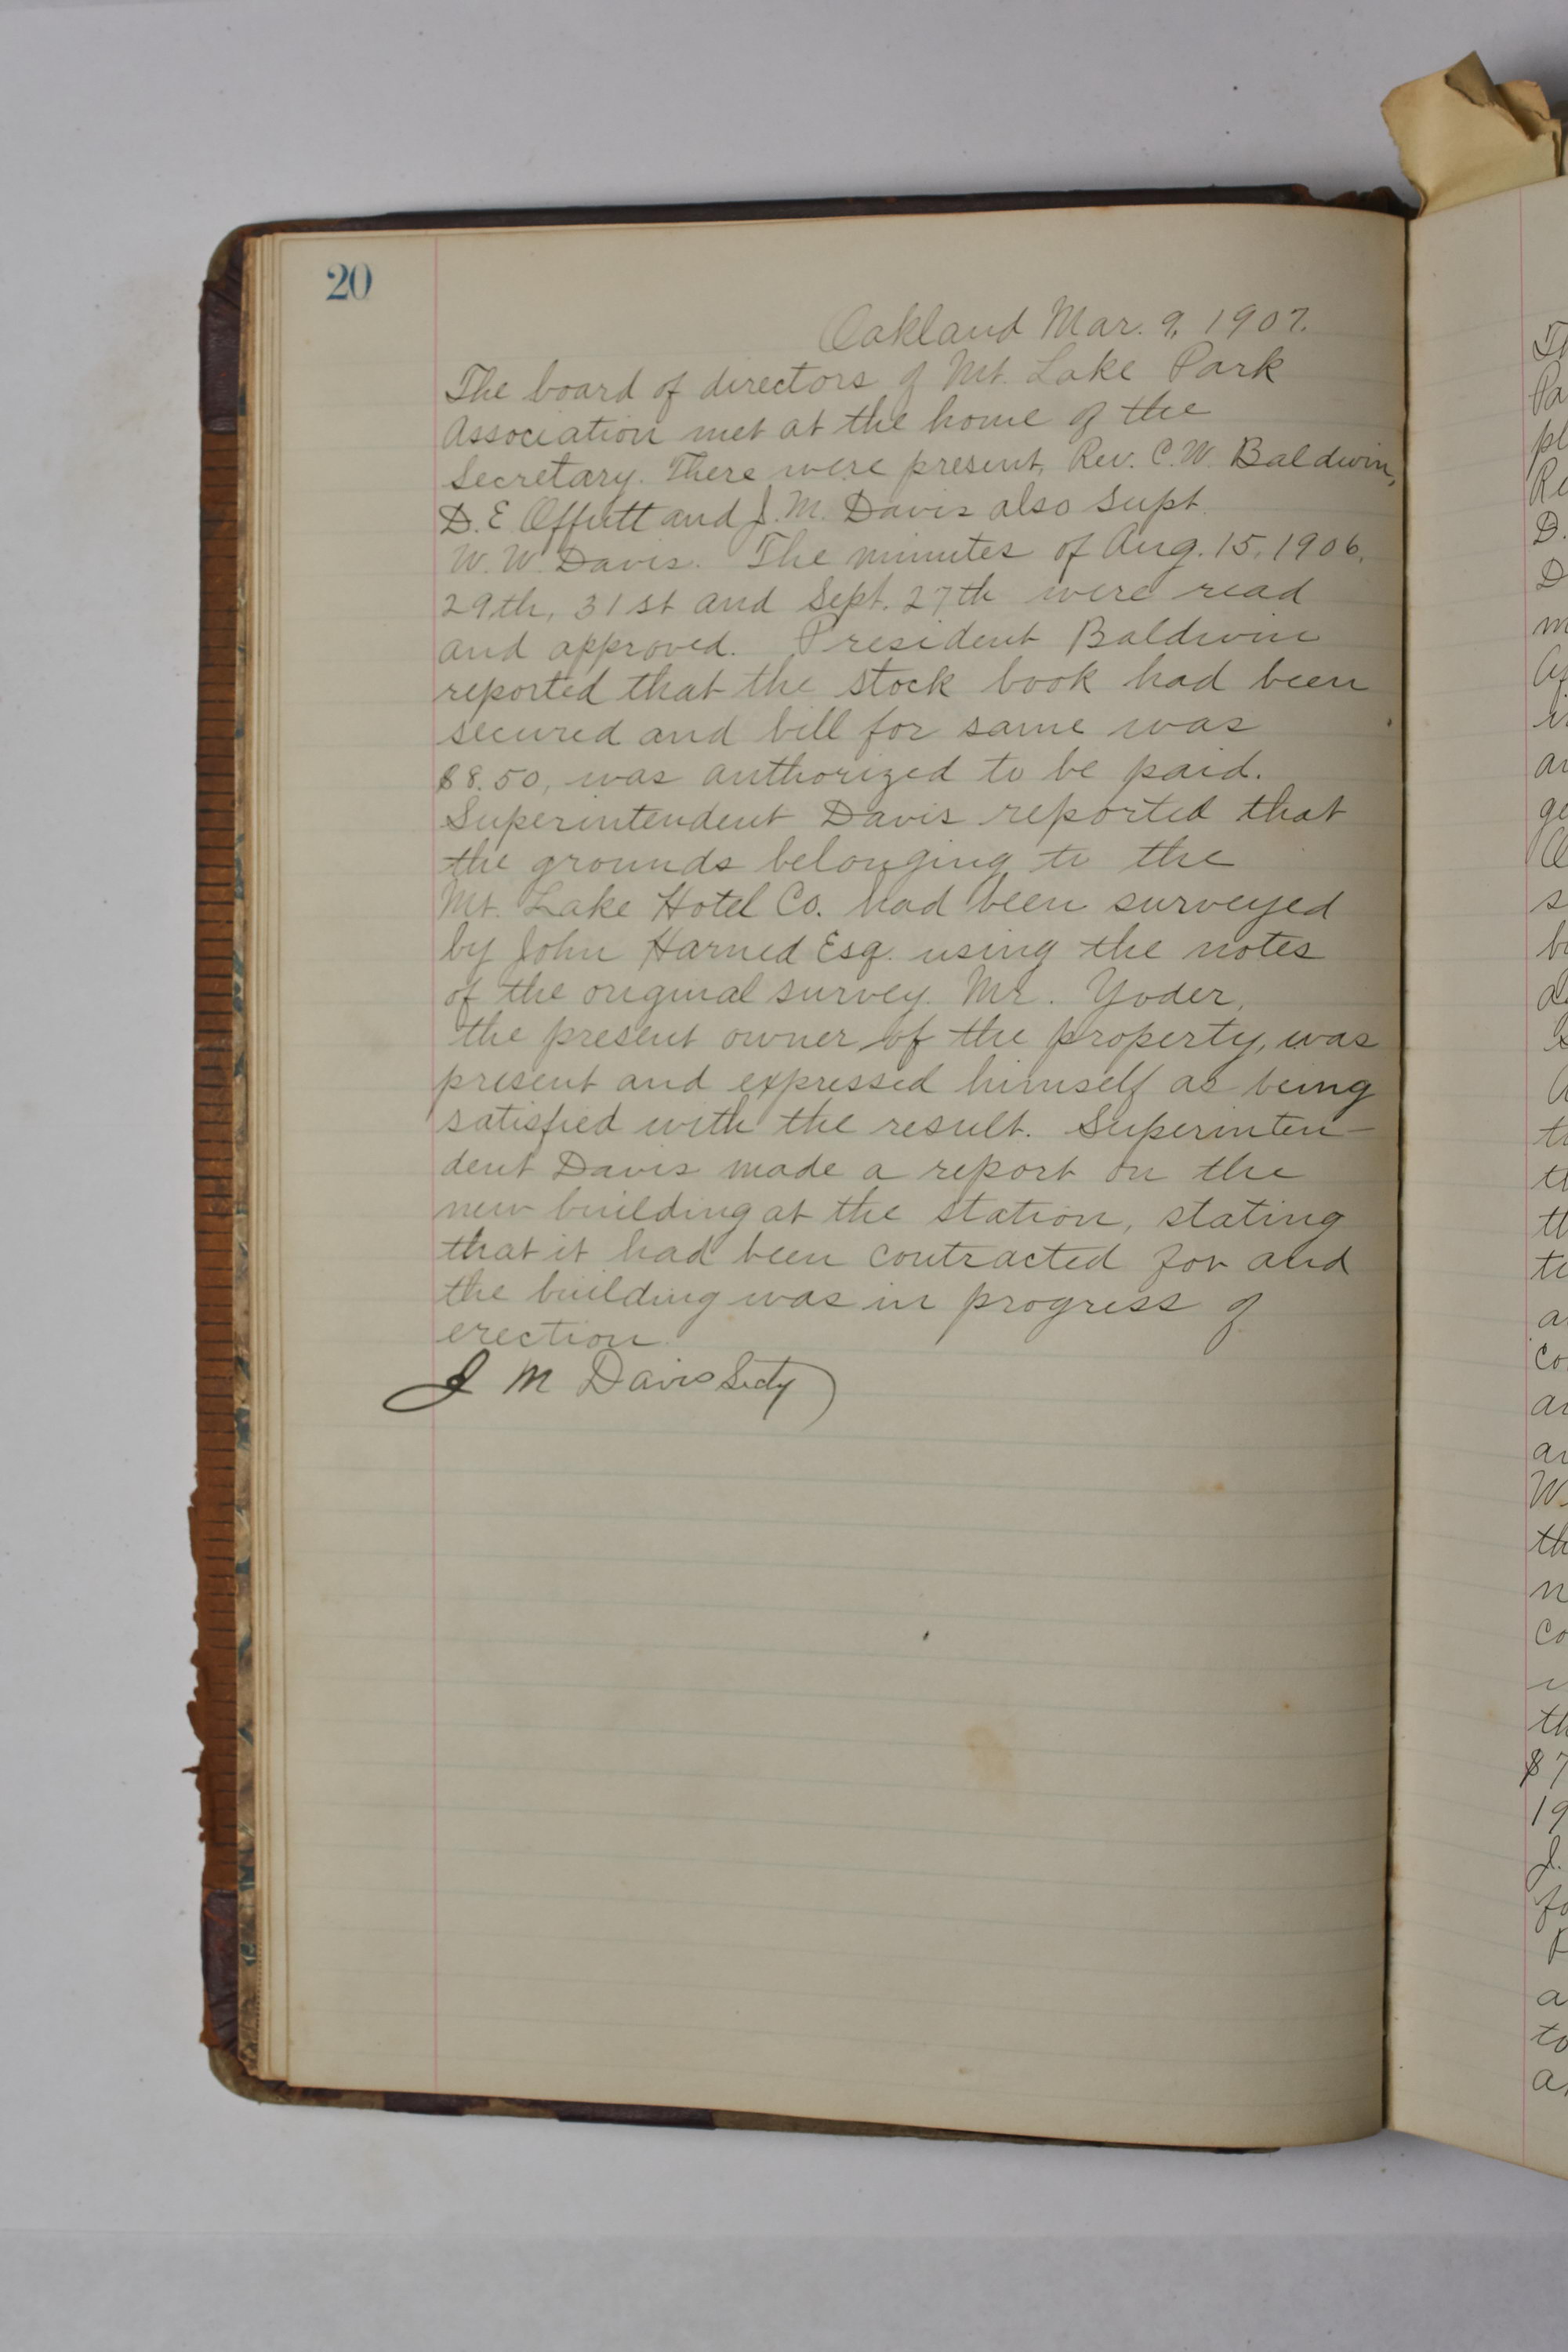 20
Oakland Mar. 9, 1907.
The board of directors of Mt. Lake Park
Association met at the home of the
Secretary. There were present, Rev. C. W. Baldwin,
D. E Offutt and J. M. Davis also Supt.
W. W. Davis. The minutes of Aug. 15, 1906,
29th, 31st and Sept. 27th were read
and approved. President Baldwin
reported that the stock book had been
secured and bill for same was
$8.50, was authorized to be paid.
Superintendent Davis reported that
the grounds belonging to the
Mt. Lake Hotel Co. had been surveyed
by John Harned Esq. using the notes
of the original survey. Mr. Yoder,
the present owner of the property, was
present and expressed himself as being
satisfied with the result. Superinten-
dent Davis made a report on the
new building at the station, stating
that it had been contracted for and
the building was in progress of
erection.
J M Davis Secty